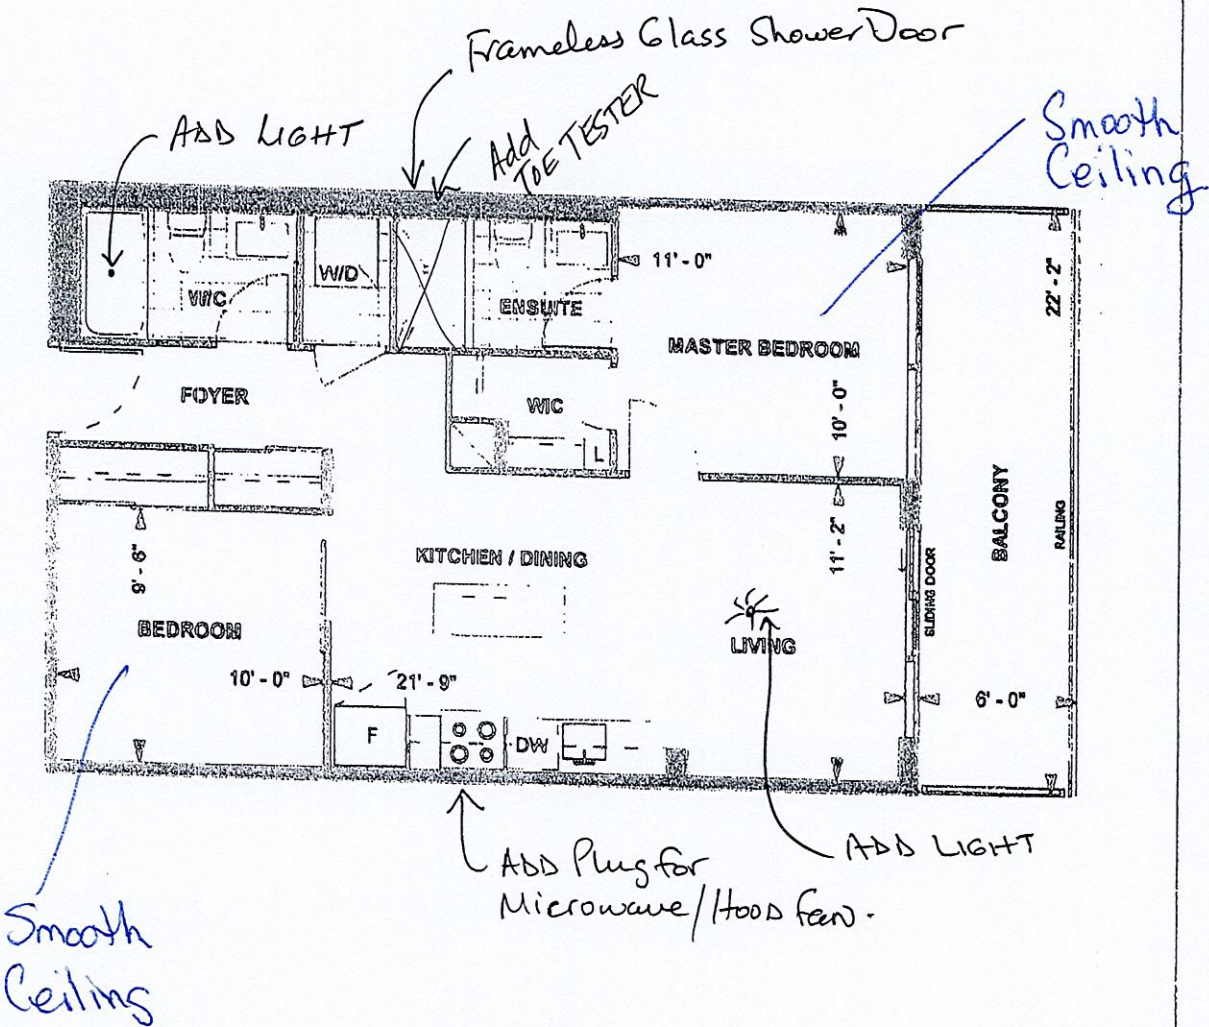 Frameless Glass Shower Door
ADD LIGHT
Add
TOE TESTER
Smooth
Ceiling
W/C
W/D
ENSUITE
11'-0"
MASTER BEDROOM
22'-2"
FOYER
WIC
L
10'-0"
11'-2"
BALCONY
RAILING
SLIDING DOOR
9'-6"
KITCHEN / DINING
BEDROOM
LIVING
10'-0"
21'-9"
6'-0"
F
DW
ADD Plug for
Microwave/HOOD fan.
ADD LIGHT
Smooth
Ceiling